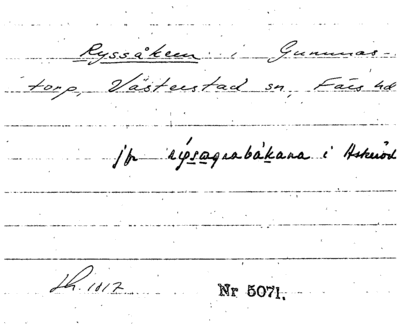 Ryssåkern i Gunnnas-
torp, Västerstad sn, Färs hd
jfr i Askeröd
Lh. 1817
Nr 5071.